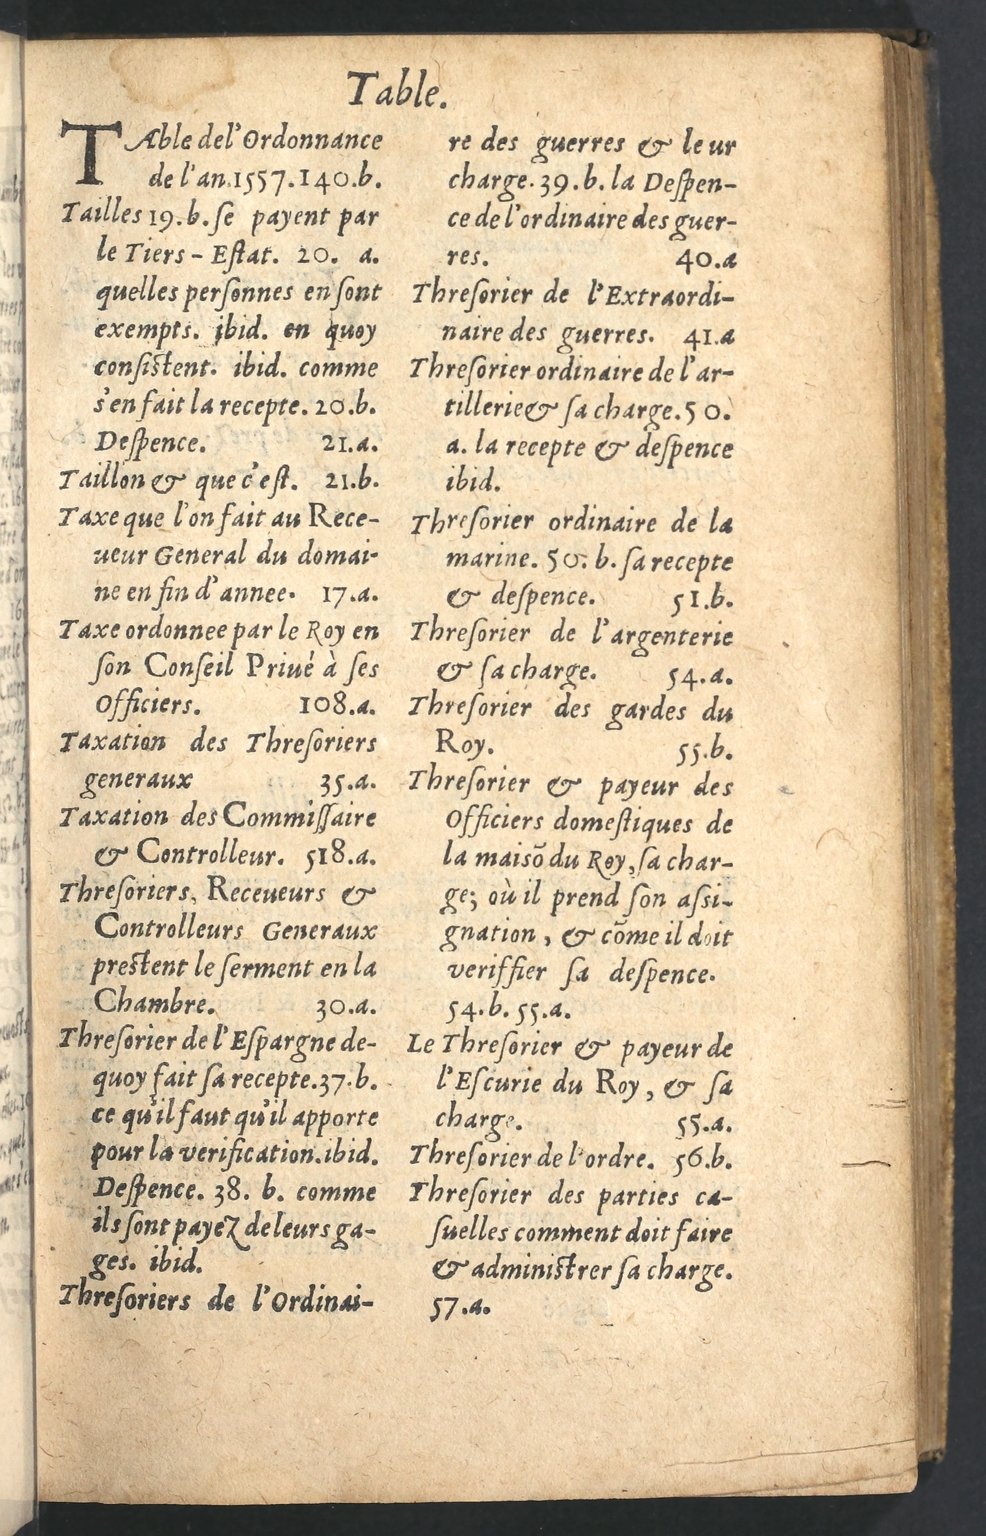 Table.
TAble del'Ordonnance
de l'an.1557.140.b.
Tailles 19.b.ſe payent par
le Tiers-Eſtat. 20. a.
quelles perſonnes en ſont
exempts. ibid. en quoy
conſiſtent. ibid. comme
s'en fait la recepte.20.b.
Deſpence. 21.a.
Taillon & que c'eſt. 21.b.
Taxe que l'on fait au Rece-
ueur General du domai-
ne en fin d'annee. 17.a.
Taxe ordonnee par le Roy en
ſon Conſeil Priué à ſes
Officiers. 108.a.
Taxation des Threſoriers
generaux 35.a.
Taxation des Commiſſaire
& Controlleur. 518.a.
Threſoriers, Receueurs &
Controlleurs Generaux
preſtent le ſerment en la
Chambre. 30.a.
Threſorier de l'Eſpargne de-
quoy fait ſa recepte.37.b.
ce qu'il faut qu'il apporte
pour la verification.ibid.
Deſpence. 38. b. comme
ils ſont payez de leurs ga-
ges. ibid.
Threſoriers de l'Ordinai-
re des guerres & leur
charge.39.b. la Deſpen-
ce de l'ordinaire des guer-
res. 40.a
Threſorier de l'Extraordi-
naire des guerres. 41.a
Threſorier ordinaire de l'ar-
tillerie & ſa charge.50.
a. la recepte & deſpence
ibid.
Threſorier ordinaire de la
marine. 50. b. ſa recepte
& deſpence. 51.b.
Threſorier de l'argenterie
& ſa charge. 54.a.
Threſorier des gardes du
Roy. 55.b.
Threſorier & payeur des
Officiers domeſtiques de
la maiſõ du Roy, ſa char-
ge; où il prend ſon aſsi-
gnation, & cõme il doit
veriffier ſa deſpence.
54.b.55.a.
Le Threſorier & payeur de
l'Eſcurie du Roy, & ſa
charge. 55.a.
Threſorier de l'ordre. 56.b.
Threſorier des parties ca-
ſuelles comment doit faire
& adminiſtrer ſa charge.
57.a.